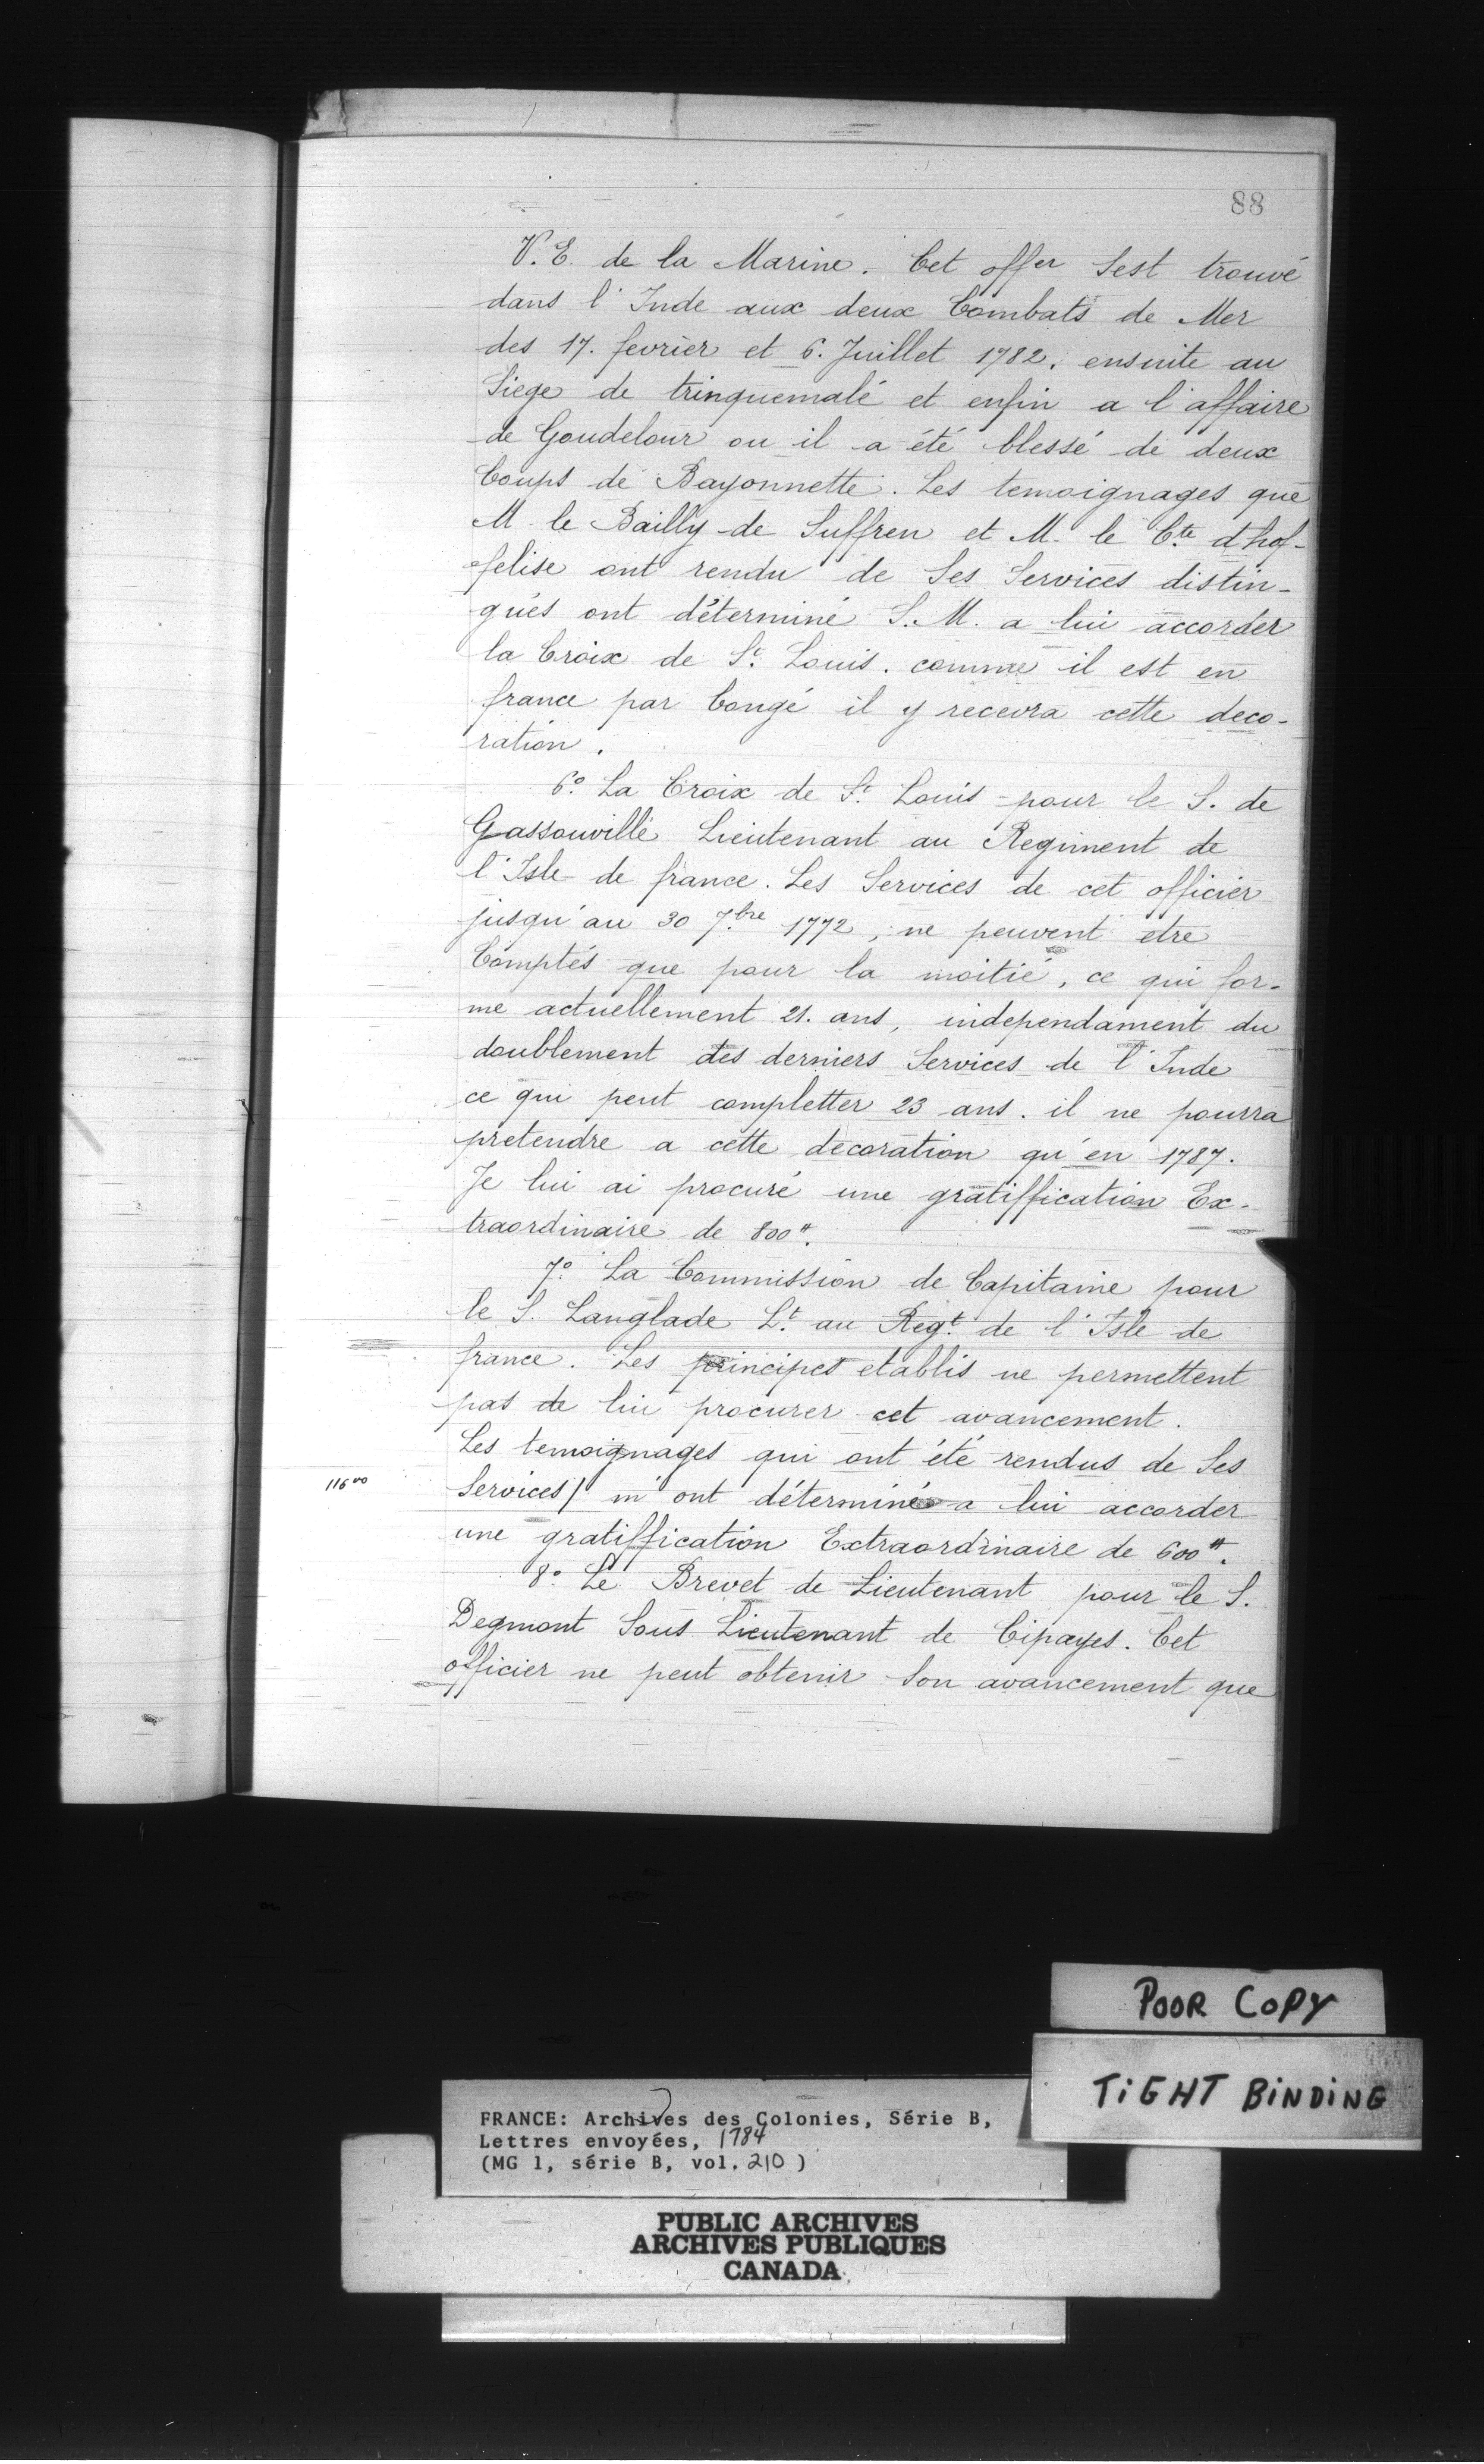 88
V. E. de la Marine. Cet offer Sest trouvé
dans l'Inde aux deux Combats de Mer
des 17. fevrier et 6. Juillet 1782. ensuite au
Siege de trinquemalé et enfin a l'affaire
de Goudelour ou il a été blessé de deux
Coups de Bayonnette. Les temoignages que
M. le Bailly de Suffren et M. le Cte d'hof-
felise ont rendu de Ses Services distin-
gués ont déterminé S. M. a lui accorder
la Croix de St. Louis. comme il est en
france par Congé il y recevra cette deco-
ration.
6º. La Croix de St. Louis pour le S. de
Gassouville Lieutenant au Regiment de
l'Isle de france. Les Services de cet officier
jusqu'au 30 7.bre 1772, ne peuvent etre
Comptés que pour la moitié, ce qui for-
me actuellement 21. ans, independament du
doublement des derniers Services de l'Inde
ce qui peut completter 23 ans. il ne pourra
pretendre a cette decoration qu'en 1787.
Je lui ai procuré une gratiffication Ex-
traordinaire de 800#.
7º. La Commission de Capitaine pour
le S. Langlade Lt. au Regt. de l'Isle de
france. Les principes etablis ne permettent
pas de lui procurer cet avancement.
Les temoignages qui ont été rendus de Ses
11600
Services/ m'ont déterminé a lui accorder
une gratiffication Extraordinaire de 600#.
8º. Le Brevet de Lieutenant pour le S.
Degmont Sous Lieutenant de Cipayes. Cet
officier ne peut obtenir Son avancement que
POOR COPY
TIGHT BINDING
FRANCE: Archives des Colonies, Série B,
Lettres envoyées, 1784
(MG 1, série B, vol. 210)
PUBLIC ARCHIVES
ARCHIVES PUBLIQUES
CANADA